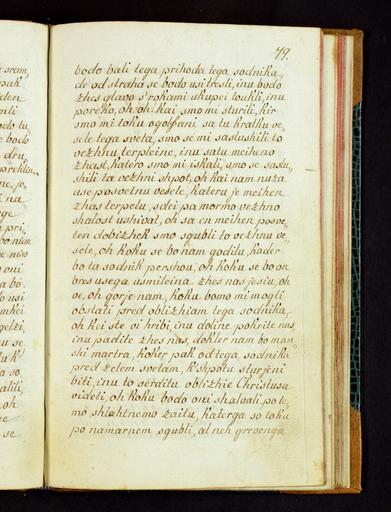 79.
bodo bali tega prihoda tega sodnika,
de od straha se bodo usi tresli, inu bodo
zhes glavo s'rokami ukupei toukli, inu
poreko, oh, oh, kai smo mi sturili, kir
smo mi toku golfani sa tu kratku ve„
sele tega sveta, smo se mi saslushili to
vezhnu terpleine, inu satu meiheno
zhast, katero smo mi iskali, smo se saslu„
shili ta vezhni shpot, oh kai nam nuza,
use posvetnu vesele, kateru je meihen
zhas terpelu, sdei pa mormo vezhno
shalost ushivat, oh sa en meihen posve„
ten dobizhek smo sgubli to vezhnu ve„
sele, oh koku se bo nam godilu, kader
bo ta sodnik pershou, oh koku se bo on
bres usega usmileina zhes nas jesiu, oh
ve, oh gorje nam, koku bomo mi mogli
obstati pred oblizhiam tega sodnika,
oh kei ste vi hribi, inu doline pokrite nas,
inu padite zhes nas, dokler nam bo man„
shi martra, koker pak od tega sodnika
pred zelem svetam, k'shpotu sturjeni
biti, inu to serditu oblizhie Christusa
videti, oh koku bodo oni shalvali po te„
mo shlahtnemo zaitu, katerga so toku
po namarnem sgubli, al neh grevenga